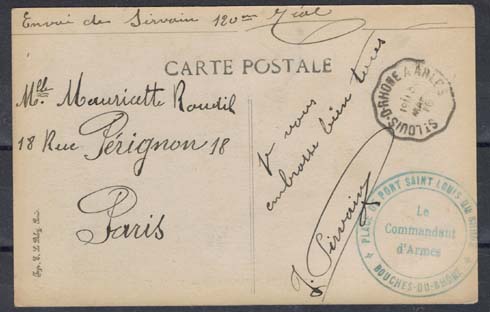 Envoi de Sirvain 120em
CARTE POSTALE
Mlle Mauricette
18 Rue Pérignon 18
Paris
je vous
embrasse bien
J. Sirvain
St LOUIS-D-RHONE A ARLES
PLACE DE PORT SAINT LOUIS DU RHÔNE
Le
Commandant
d'Armes
BOUCHES-DU-RHÔNE